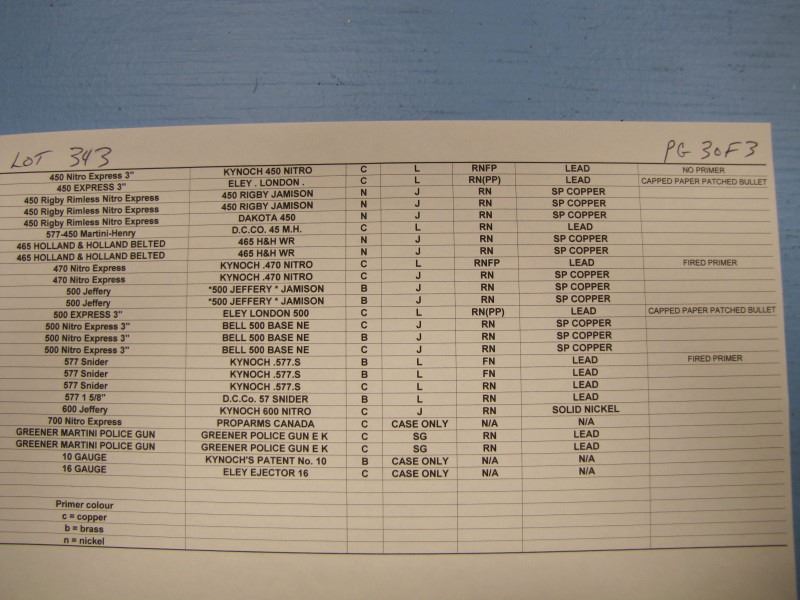 LOT 343 PG 3 OF 3
450 Nitro Express 3" KYNOCH 450 NITRO C L RNFP LEAD NO PRIMER
450 EXPRESS 3" ELEY . LONDON . C L RN(PP) LEAD CAPPED PAPER PATCHED BULLET
450 Rigby Rimless Nitro Express 450 RIGBY JAMISON N J RN SP COPPER
450 Rigby Rimless Nitro Express 450 RIGBY JAMISON N J RN SP COPPER
450 Rigby Rimless Nitro Express DAKOTA 450 N J RN SP COPPER
577-450 Martini-Henry D.C.CO. 45 M.H. C L RN LEAD
465 HOLLAND & HOLLAND BELTED 465 H&H WR N J RN SP COPPER
465 HOLLAND & HOLLAND BELTED 465 H&H WR N J RN SP COPPER
470 Nitro Express KYNOCH .470 NITRO C L RNFP LEAD FIRED PRIMER
470 Nitro Express KYNOCH .470 NITRO C J RN SP COPPER
500 Jeffery *500 JEFFERY * JAMISON B J RN SP COPPER
500 Jeffery *500 JEFFERY * JAMISON B J RN SP COPPER
500 EXPRESS 3" ELEY LONDON 500 C L RN(PP) LEAD CAPPED PAPER PATCHED BULLET
500 Nitro Express 3" BELL 500 BASE NE C J RN SP COPPER
500 Nitro Express 3" BELL 500 BASE NE B J RN SP COPPER
500 Nitro Express 3" BELL 500 BASE NE B J RN SP COPPER
577 Snider KYNOCH .577.S B L FN LEAD FIRED PRIMER
577 Snider KYNOCH .577.S B L FN LEAD
577 Snider KYNOCH .577.S C L RN LEAD
577 1 5/8" D.C.Co. 57 SNIDER B L RN LEAD
600 Jeffery KYNOCH 600 NITRO C J RN SOLID NICKEL
700 Nitro Express PROPARMS CANADA C CASE ONLY N/A N/A
GREENER MARTINI POLICE GUN GREENER POLICE GUN E K C SG RN LEAD
GREENER MARTINI POLICE GUN GREENER POLICE GUN E K C SG RN LEAD
10 GAUGE KYNOCH'S PATENT No. 10 B CASE ONLY N/A N/A
16 GAUGE ELEY EJECTOR 16 C CASE ONLY N/A N/A
Primer colour
c = copper
b = brass
n = nickel